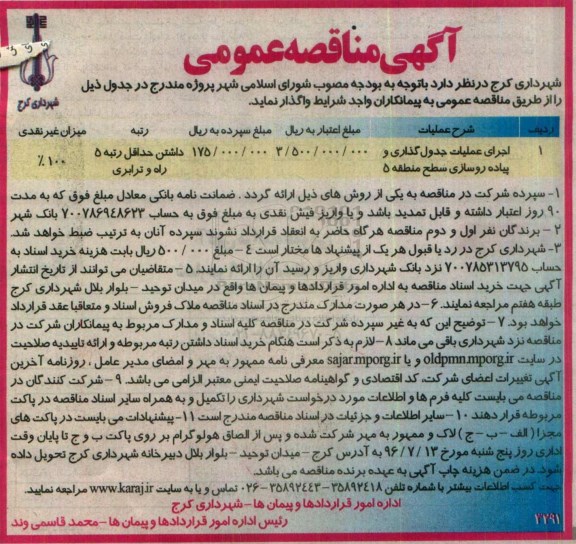 آگهی مناقصه عمومی
شهرداری کرج
شهرداری کرج درنظر دارد باتوجه به بودجه مصوب شورای اسلامی شهر پروژه مندرج در جدول ذیل
را از طریق مناقصه عمومی به پیمانکاران واجد شرایط واگذار نماید.
ردیف شرح عملیات مبلغ اعتبار به ریال مبلغ سپرده به ریال رتبه میزان غیر نقدی
۱ اجرای عملیات جدول گذاری و ۳/۵۰۰/۰۰۰/۰۰۰ ۱۷۵/۰۰۰/۰۰۰ داشتن حداقل رتبه ۵ ۱۰۰٪
پیاده روسازی سطح منطقه ۵ راه و ترابری
۱- سپرده شرکت در مناقصه به یکی از روش های ذیل ارائه گردد . ضمانت نامه بانکی معادل مبلغ فوق که به مدت
۹۰ روز اعتبار داشته و قابل تمدید باشد و یا واریز فیش نقدی به مبلغ فوق به حساب ۷۰۰۷۸۶۹۴۸۶۲۳ بانک شهر
۲- برندگان نفر اول و دوم مناقصه هرگاه حاضر به انعقاد قرارداد نشوند سپرده آنان به ترتیب ضبط خواهد شد.
۳- شهرداری کرج در رد یا قبول هر یک از پیشنهاد ها مختار است ۴- مبلغ ۵۰۰/۰۰۰ ریال بابت هزینه خرید اسناد به
حساب ۷۰۰۷۸۵۳۱۳۷۹۵ نزد بانک شهرداری واریز و رسید آن را ارائه نمایند. ۵- متقاضیان می توانند از تاریخ انتشار
آگهی جهت خرید اسناد مناقصه به اداره امور قراردادها و پیمان ها واقع در میدان توحید - بلوار بلال شهرداری کرج
طبقه هفتم مراجعه نمایند. ۶- در هر صورت مدارک مندرج در اسناد مناقصه ملاک فروش اسناد و متعاقبا عقد قرارداد
خواهد بود. ۷- توضیح این که به غیر سپرده شرکت در مناقصه کلیه اسناد و مدارک مربوط به پیمانکاران شرکت در
مناقصه نزد شهرداری باقی می ماند ۸- لازم به ذکر است هنگام خرید اسناد داشتن رتبه مربوطه و ارائه تاییدیه صلاحیت
در سایت oldpmn.mporg.ir و یا sajar.mporg.ir معرفی نامه ممهور به مهر و امضای مدیر عامل ، روزنامه آخرین
آگهی تغییرات اعضای شرکت، کد اقتصادی و گواهینامه صلاحیت ایمنی معتبر الزامی می باشد. ۹- شرکت کنندگان در
مناقصه می بایست کلیه فرم ها و اطلاعات مورد درخواست شهرداری را تکمیل و به همراه سایر اسناد مناقصه در پاکت
مربوطه قرار دهند ۱۰- سایر اطلاعات و جزئیات در اسناد مناقصه مندرج است ۱۱- پیشنهادات می بایست در پاکت های
مجزا ( الف - ب - ج ) لاک و ممهور به مهر شرکت شده و پس از الصاق هولوگرام بر روی پاکت ب و ج تا پایان وقت
اداری روز پنج شنبه مورخ ۹۶/۷/۱۳ به آدرس کرج - میدان توحید - بلوار بلال دبیرخانه شهرداری کرج تحویل داده
شود. در ضمن هزینه چاپ آگهی به عهده برنده مناقصه می باشد.
جهت کسب اطلاعات بیشتر با شماره تلفن ۳۵۸۹۲۴۱۸ - ۳۵۸۹۲۴۴۳-۰۲۶ تماس و یا به سایت www.karaj.ir مراجعه نمایید.
اداره امور قراردادها و پیمان ها - شهرداری کرج
رئیس اداره امور قراردادها و پیمان ها - محمد قاسمی وند
۲۲۹۱